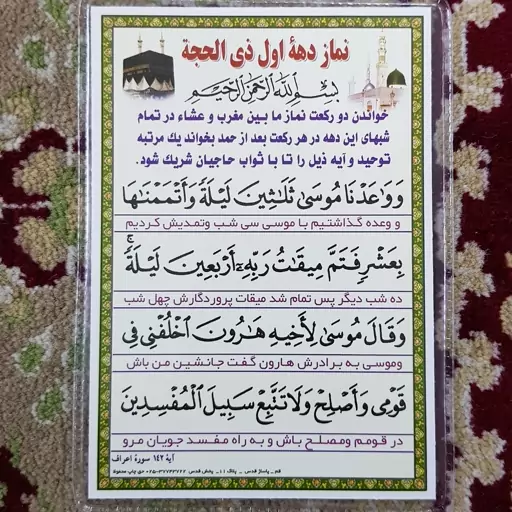 نماز دههٔ اول ذی الحجة
بسم الله الرحمن الرحیم
خواندن دو رکعت نماز ما بین مغرب و عشاء در تمام
شبهای این دهه در هر رکعت بعد از حمد بخواند یك مرتبه
توحید و آیه ذیل را تا با ثواب حاجیان شریك شود.
وَوَاعَدْنَا مُوسَىٰ ثَلَاثِينَ لَيْلَةً وَأَتْمَمْنَاهَا
و وعده گذاشتیم با موسی سی شب وتمدیش کردیم
بِعَشْرٍ فَتَمَّ مِيقَاتُ رَبِّهِ أَرْبَعِينَ لَيْلَةً ۚ
ده شب دیگر پس تمام شد میقات پروردگارش چهل شب
وَقَالَ مُوسَىٰ لِأَخِيهِ هَارُونَ اخْلُفْنِي فِي
وموسی به برادرش هارون گفت جانشین من باش
قَوْمِي وَأَصْلِحْ وَلَا تَتَّبِعْ سَبِيلَ الْمُفْسِدِينَ
در قومم ومصلح باش و به راه مفسد جویان مرو
آیهٔ ۱۴۲ سورهٔ اعراف
قم _ پاساژ قدس _ پلاک ۱۱_ پخش قدس